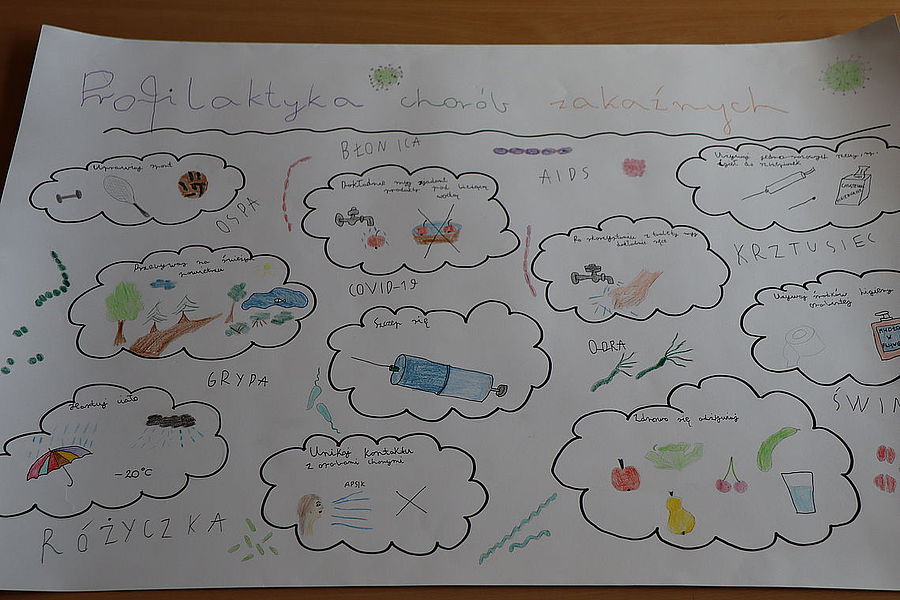 Profilaktyka chorób zakaźnych
BŁONICA
AIDS
Uprawiaj sport
OSPA
Dokładnie myj
produkty pod bieżącą
wodą
Używaj jednorazowych
KRZTUSIEC
Przebywaj na świeżym
powietrzu
COVID-19
Po skorzystaniu z toalety myj
dokładnie ręce
Używaj środków higieny
osobistej
MYDŁO
W
Szczep się
ODRA
GRYPA
Hartuj ciało
-20°C
ŚWIN
Zdrowo się odżywiaj
Unikaj kontaktu
z osobami chorymi
APSIK
RÓŻYCZKA